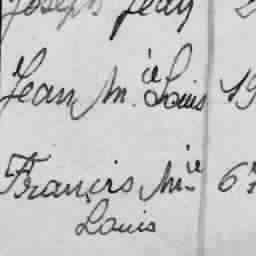 Joseph Jean 2
Jean M.ie Louis 19
François M.ie 67
Louis